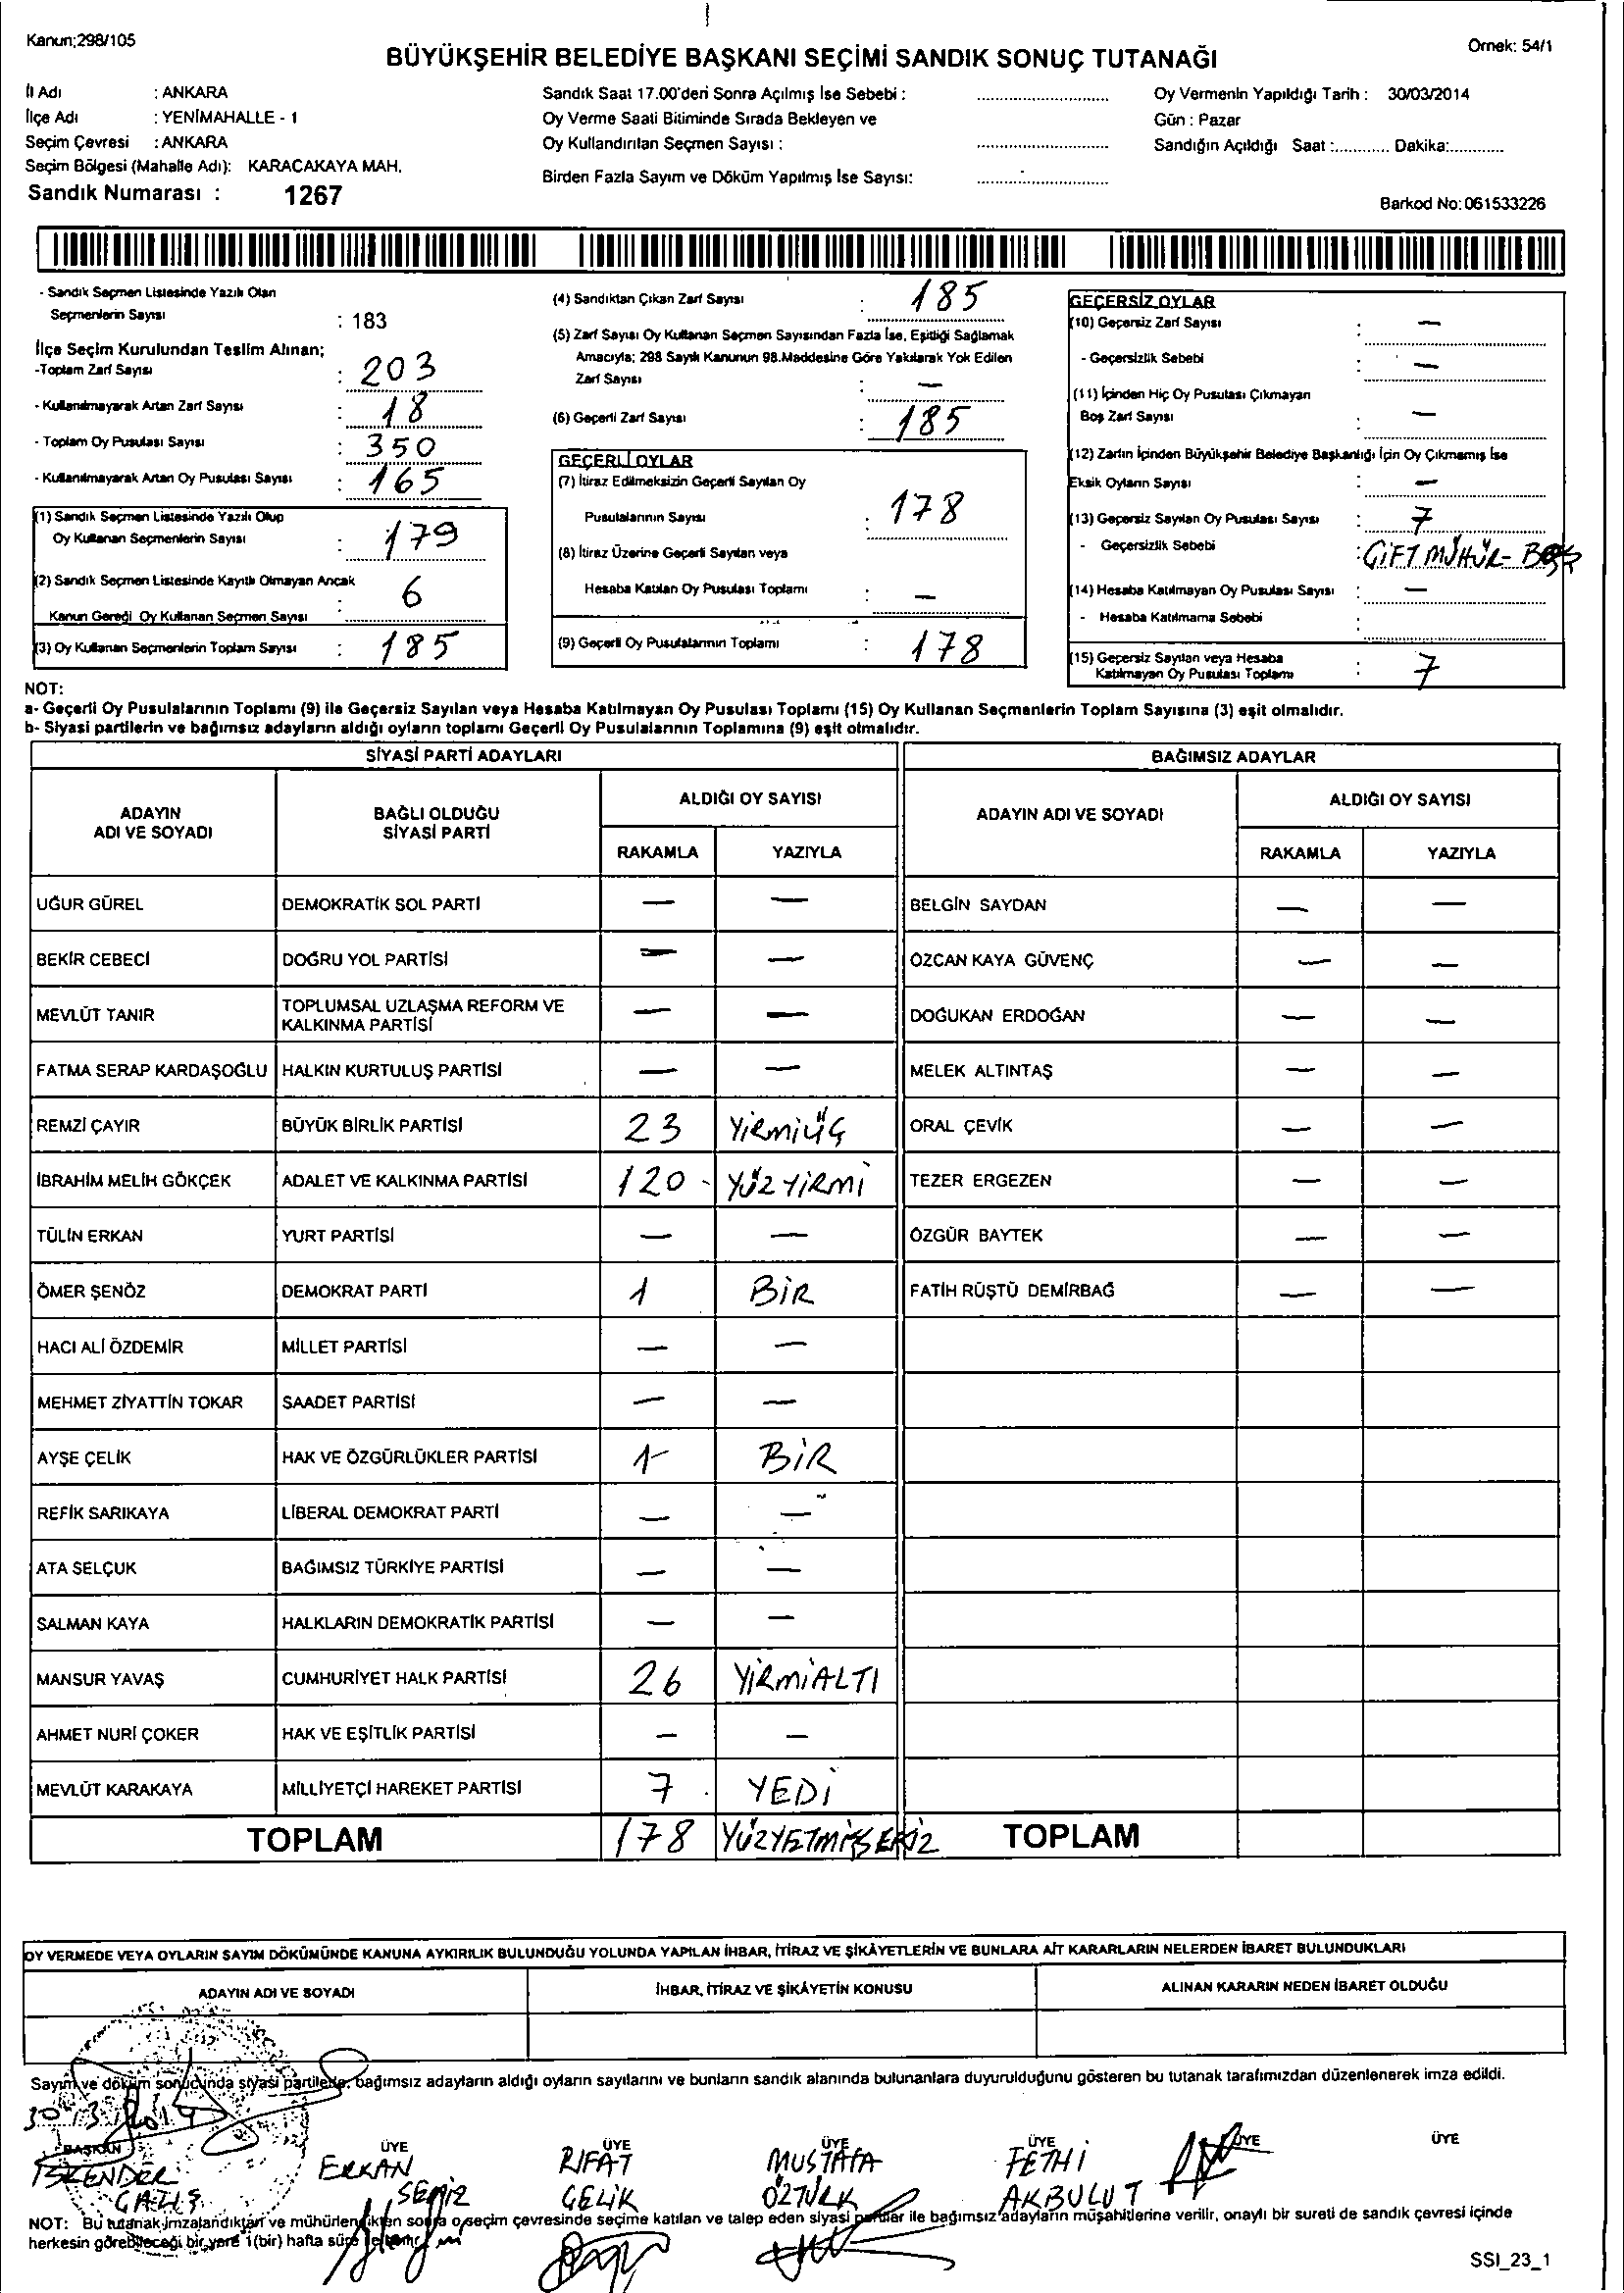 Kanun;298/105
Örnek: 54/1
BÜYÜKŞEHİR BELEDİYE BAŞKANI SEÇİMİ SANDIK SONUÇ TUTANAĞI
İl Adı : ANKARA
İlçe Adı : YENİMAHALLE - 1
Seçim Çevresi : ANKARA
Seçim Bölgesi (Mahalle Adı): KARACAKAYA MAH.
Sandık Numarası : 1267
Sandık Saat 17.00'den Sonra Açılmış İse Sebebi :
Oy Verme Saati Bitiminde Sırada Bekleyen ve
Oy Kullandırılan Seçmen Sayısı :
Birden Fazla Sayım ve Döküm Yapılmış İse Sayısı:
Oy Vermenin Yapıldığı Tarih : 30/03/2014
Gün : Pazar
Sandığın Açıldığı Saat :............ Dakika:............
Barkod No: 061533226
- Sandık Seçmen Listesinde Yazılı Olan
Seçmenlerin Sayısı : 183
İlçe Seçim Kurulundan Teslim Alınan;
-Toplam Zarf Sayısı : 203
- Kullanılmayarak Artan Zarf Sayısı : 18
- Toplam Oy Pusulası Sayısı : 350
- Kullanılmayarak Artan Oy Pusulası Sayısı : 165
(1) Sandık Seçmen Listesinde Yazılı Olup
Oy Kullanan Seçmenlerin Sayısı : 179
(2) Sandık Seçmen Listesinde Kayıtlı Olmayan Ancak
Kanun Gereği Oy Kullanan Seçmen Sayısı : 6
(3) Oy Kullanan Seçmenlerin Toplam Sayısı : 185
(4) Sandıktan Çıkan Zarf Sayısı : 185
(5) Zarf Sayısı Oy Kullanan Seçmen Sayısından Fazla İse, Eşitliği Sağlamak
Amacıyla; 298 Sayılı Kanunun 98.Maddesine Göre Yakılarak Yok Edilen
Zarf Sayısı : —
(6) Geçerli Zarf Sayısı : 185
GEÇERLİ OYLAR
(7) İtiraz Edilmeksizin Geçerli Sayılan Oy
Pusulalarının Sayısı : 178
(8) İtiraz Üzerine Geçerli Sayılan veya
Hesaba Katılan Oy Pusulası Toplamı : —
(9) Geçerli Oy Pusulalarının Toplamı : 178
GEÇERSİZ OYLAR
(10) Geçersiz Zarf Sayısı : —
- Geçersizlik Sebebi : —
(11) İçinden Hiç Oy Pusulası Çıkmayan
Boş Zarf Sayısı : —
(12) Zarfın İçinden Büyükşehir Belediye Başkanlığı İçin Oy Çıkmamış İse
Eksik Oyların Sayısı : —
(13) Geçersiz Sayılan Oy Pusulası Sayısı : 7
- Geçersizlik Sebebi : ÇİFT MÜHÜR- BOŞ
(14) Hesaba Katılmayan Oy Pusulası Sayısı : —
- Hesaba Katılmama Sebebi :
(15) Geçersiz Sayılan veya Hesaba
Katılmayan Oy Pusulası Toplamı : 7
NOT:
a- Geçerli Oy Pusulalarının Toplamı (9) ile Geçersiz Sayılan veya Hesaba Katılmayan Oy Pusulası Toplamı (15) Oy Kullanan Seçmenlerin Toplam Sayısına (3) eşit olmalıdır.
b- Siyasi partilerin ve bağımsız adayların aldığı oyların toplamı Geçerli Oy Pusulalarının Toplamına (9) eşit olmalıdır.
SİYASİ PARTİ ADAYLARI
ADAYIN ADI VE SOYADI
BAĞLI OLDUĞU SİYASİ PARTİ
ALDIĞI OY SAYISI
RAKAMLA YAZIYLA
UĞUR GÜREL DEMOKRATİK SOL PARTİ — —
BEKİR CEBECİ DOĞRU YOL PARTİSİ — —
MEVLÜT TANIR TOPLUMSAL UZLAŞMA REFORM VE KALKINMA PARTİSİ — —
FATMA SERAP KARDAŞOĞLU HALKIN KURTULUŞ PARTİSİ — —
REMZİ ÇAYIR BÜYÜK BİRLİK PARTİSİ 23 YİRMİÜÇ
İBRAHİM MELİH GÖKÇEK ADALET VE KALKINMA PARTİSİ 120 - YÜZYİRMİ
TÜLİN ERKAN YURT PARTİSİ — —
ÖMER ŞENÖZ DEMOKRAT PARTİ 1 BİR
HACI ALİ ÖZDEMİR MİLLET PARTİSİ — —
MEHMET ZİYATTİN TOKAR SAADET PARTİSİ — —
AYŞE ÇELİK HAK VE ÖZGÜRLÜKLER PARTİSİ 1- BİR
REFİK SARIKAYA LİBERAL DEMOKRAT PARTİ — —
ATA SELÇUK BAĞIMSIZ TÜRKİYE PARTİSİ — —
SALMAN KAYA HALKLARIN DEMOKRATİK PARTİSİ — —
MANSUR YAVAŞ CUMHURİYET HALK PARTİSİ 26 YİRMİALTI
AHMET NURİ ÇOKER HAK VE EŞİTLİK PARTİSİ — —
MEVLÜT KARAKAYA MİLLİYETÇİ HAREKET PARTİSİ 7 YEDİ
TOPLAM 178 YÜZYETMİŞSEKİZ
BAĞIMSIZ ADAYLAR
ADAYIN ADI VE SOYADI
ALDIĞI OY SAYISI
RAKAMLA YAZIYLA
BELGİN SAYDAN — —
ÖZCAN KAYA GÜVENÇ — —
DOĞUKAN ERDOĞAN — —
MELEK ALTINTAŞ — —
ORAL ÇEVİK — —
TEZER ERGEZEN — —
ÖZGÜR BAYTEK — —
FATİH RÜŞTÜ DEMİRBAĞ — —
TOPLAM
OY VERMEDE VEYA OYLARIN SAYIM DÖKÜMÜNDE KANUNA AYKIRILIK BULUNDUĞU YOLUNDA YAPILAN İHBAR, İTİRAZ VE ŞİKÂYETLERİN VE BUNLARA AİT KARARLARIN NELERDEN İBARET BULUNDUKLARI
ADAYIN ADI VE SOYADI İHBAR, İTİRAZ VE ŞİKÂYETİN KONUSU ALINAN KARARIN NEDEN İBARET OLDUĞU
Sayım ve döküm sonucunda siyasi partilerle, bağımsız adayların aldığı oyların sayılarını ve bunların sandık alanında bulunanlara duyurulduğunu gösteren bu tutanak tarafımızdan düzenlenerek imza edildi.
30/3/2014
BAŞKAN ÜYE ÜYE ÜYE ÜYE ÜYE ÜYE
İSKENDER ERKAN RIFAT MUSTAFA FETHİ
SEMİZ ÇELİK ÖZTÜRK AKBULUT
NOT: Bu tutanak imzalandıktan ve mühürlendikten sonra o seçim çevresinde seçime katılan ve talep eden siyasi partiler ile bağımsız adayların müşahitlerine verilir, onaylı bir sureti de sandık çevresi içinde
herkesin görebileceği bir yere 1(bir) hafta süre
SSI_23_1